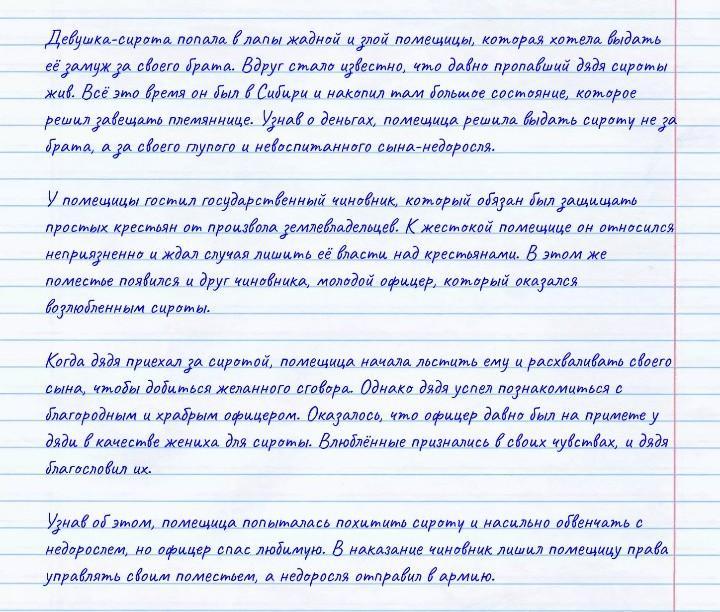 Девушка-сирота попала в лапы жадной и злой помещицы, которая хотела выдать
её замуж за своего брата. Вдруг стало известно, что давно пропавший дядя сироты
жив. Всё это время он был в Сибири и накопил там большое состояние, которое
решил завещать племяннице. Узнав о деньгах, помещица решила выдать сироту не за
брата, а за своего глупого и невоспитанного сына-недоросля.
У помещицы гостил государственный чиновник, который обязан был защищать
простых крестьян от произвола землевладельцев. К жестокой помещице он относился
неприязненно и ждал случая лишить её власти над крестьянами. В этом же
поместье появился и друг чиновника, молодой офицер, который оказался
возлюбленным сироты.
Когда дядя приехал за сиротой, помещица начала льстить ему и расхваливать своего
сына, чтобы добиться желанного сговора. Однако дядя успел познакомиться с
благородным и храбрым офицером. Оказалось, что офицер давно был на примете у
дяди в качестве жениха для сироты. Влюблённые признались в своих чувствах, и дядя
благословил их.
Узнав об этом, помещица попыталась похитить сироту и насильно обвенчать с
недорослем, но офицер спас любимую. В наказание чиновник лишил помещицу права
управлять своим поместьем, а недоросля отправил в армию.